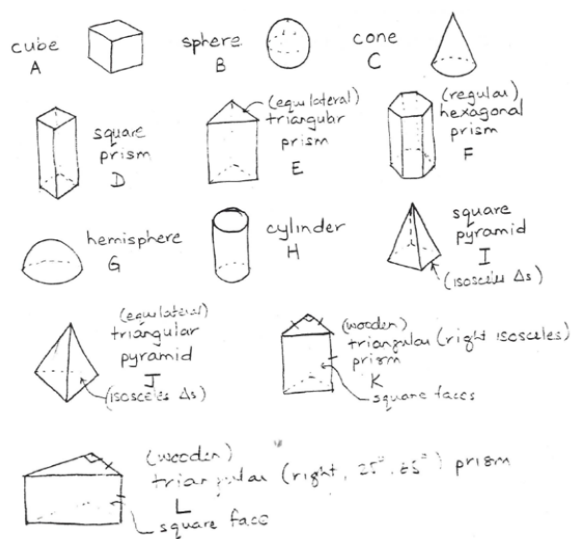 cube
A
sphere
B
cone
C
square
prism
D
(equilateral)
triangular
prism
E
(regular)
hexagonal
prism
F
hemisphere
G
cylinder
H
square
pyramid
I
(isosceles Δs)
(equilateral)
triangular
pyramid
J
(isosceles Δs)
(wooden)
triangular (right isosceles)
prism
K
square faces
(wooden)
triangular (right, 25°, 65°) prism
L
square face